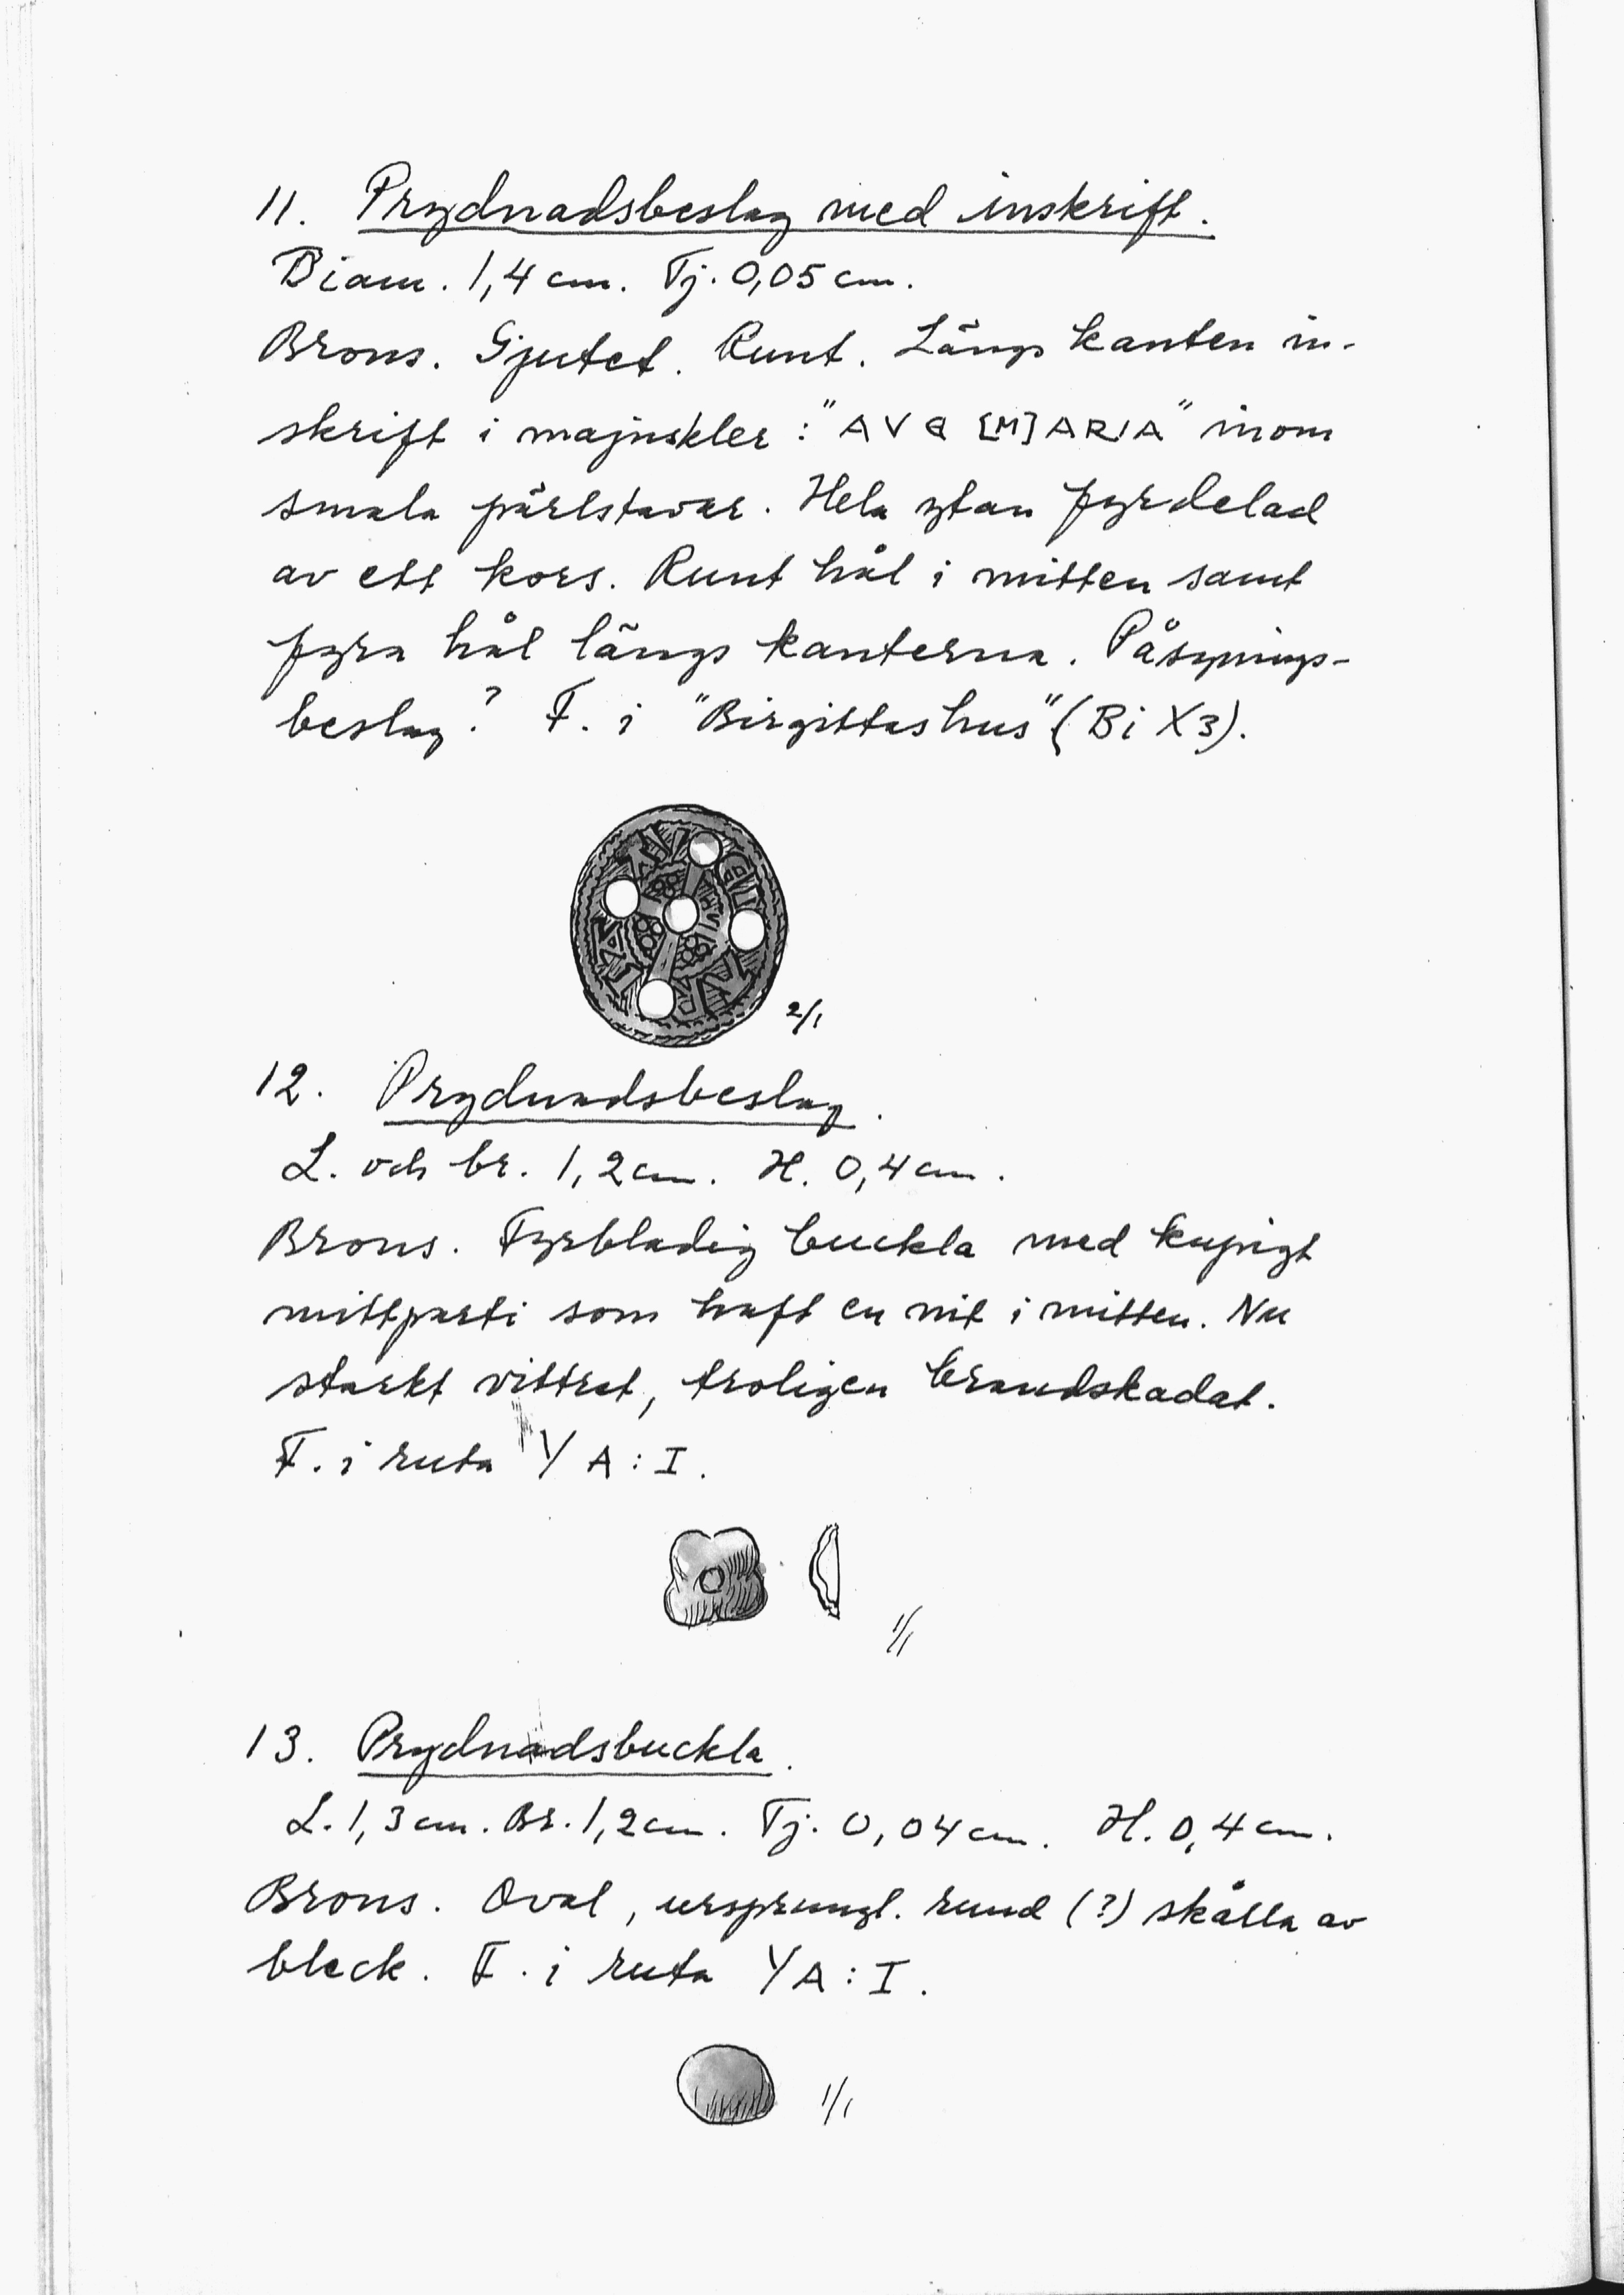 11. Prydnadsbeslag med inskrift.
Diam. 1,4 cm. Tj. 0,05 cm.
Brons. Gjutet. Runt. Längs kanten in-
skrift i majuskler: "AVE [M]ARIA" inom
smala pärlstavar. Hela ytan fyrdelad
av ett kors. Runt hål i mitten samt
fyra hål längs kanterna. Påsynings-
beslag? F. i "Birgittas hus" (Bi X3).
2/1
12. Prydnadsbeslag.
L. och br. 1,2 cm. H. 0,4 cm.
Brons. Fyrbladig buckla med kupigt
mittparti som haft en nit i mitten. Nu
starkt vittrat, troligen brandskadat.
F. i ruta YA:I.
1/1
13. Prydnadsbuckla.
L. 1,3 cm. Br. 1,2 cm. Tj. 0,04 cm. H. 0,4 cm.
Brons. Oval, ursprungl. rund (?) skålla av
bleck. F. i ruta YA:I.
1/1